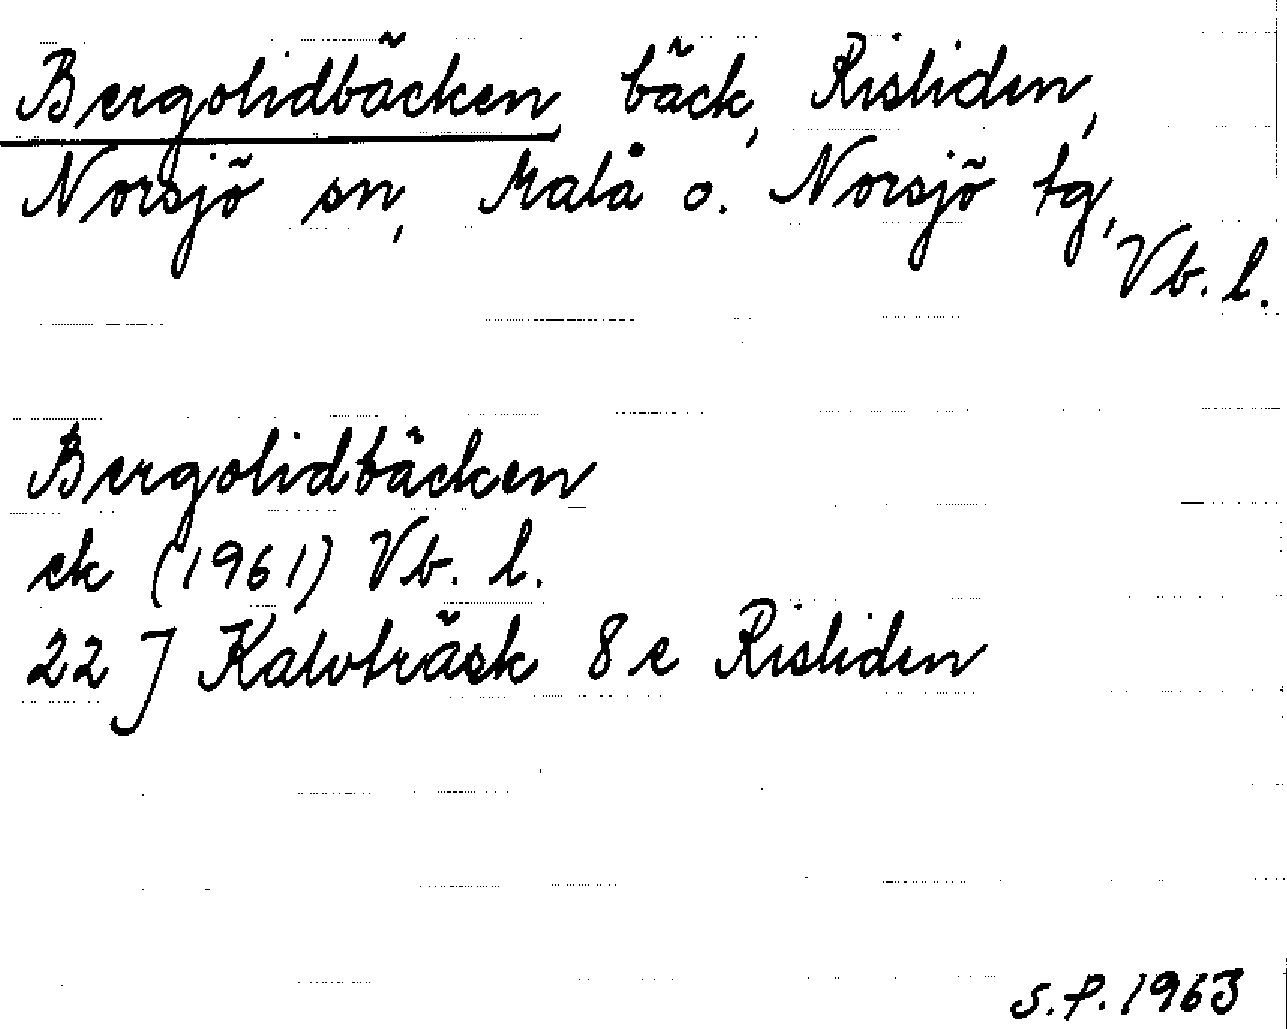 Bergolidbäcken, bäck, Risliden,
Norsjö sn, Malå o. Norsjö tg,
Vb. l.
Bergolidbäcken
ek (1961) Vb. l.
22 J Kalvträsk 8 e Risliden
S.P. 1963